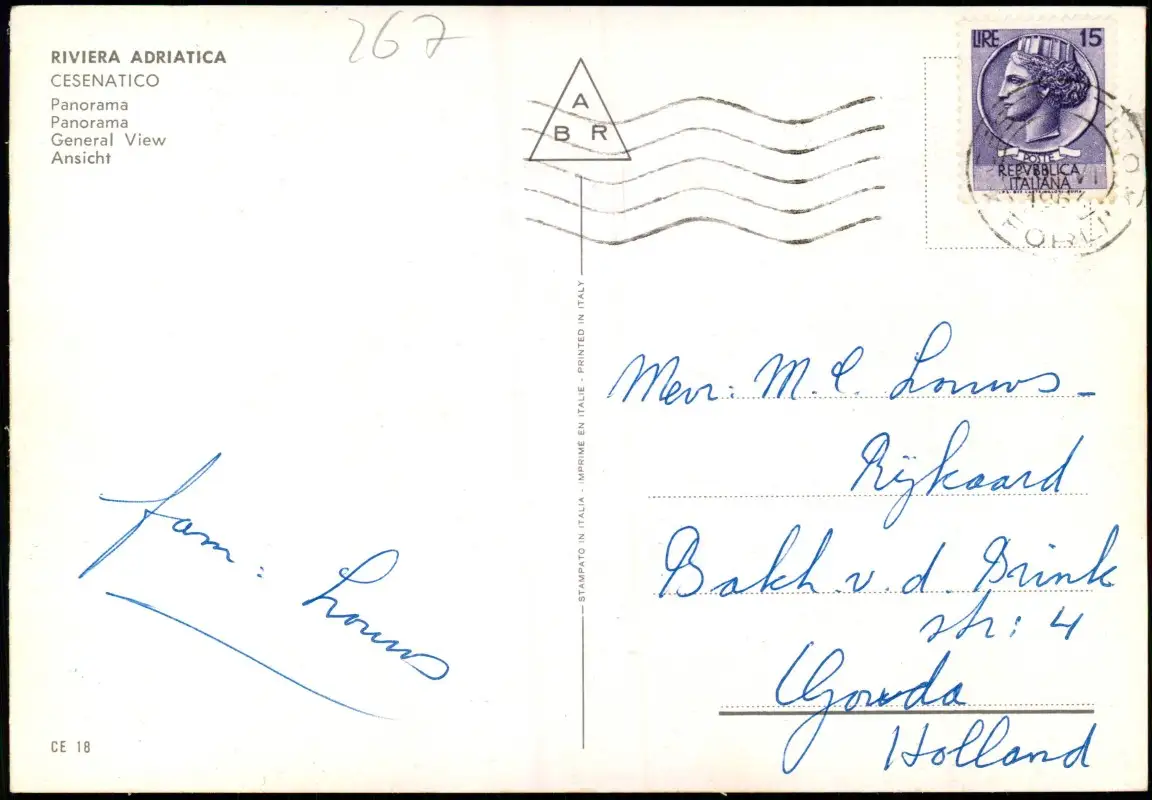 267
RIVIERA ADRIATICA
CESENATICO
Panorama
Panorama
General View
Ansicht
A
B R
LIRE 15
POSTE
REPVBBLICA
ITALIANA
FORLI
STAMPATO IN ITALIA - IMPRIMÉ EN ITALIE - PRINTED IN ITALY
Mevr: M. C. Louws -
Rijkaard
Bakh. v. d. Brink
str: 4
Gouda
Holland
fam: Louws
CE 18